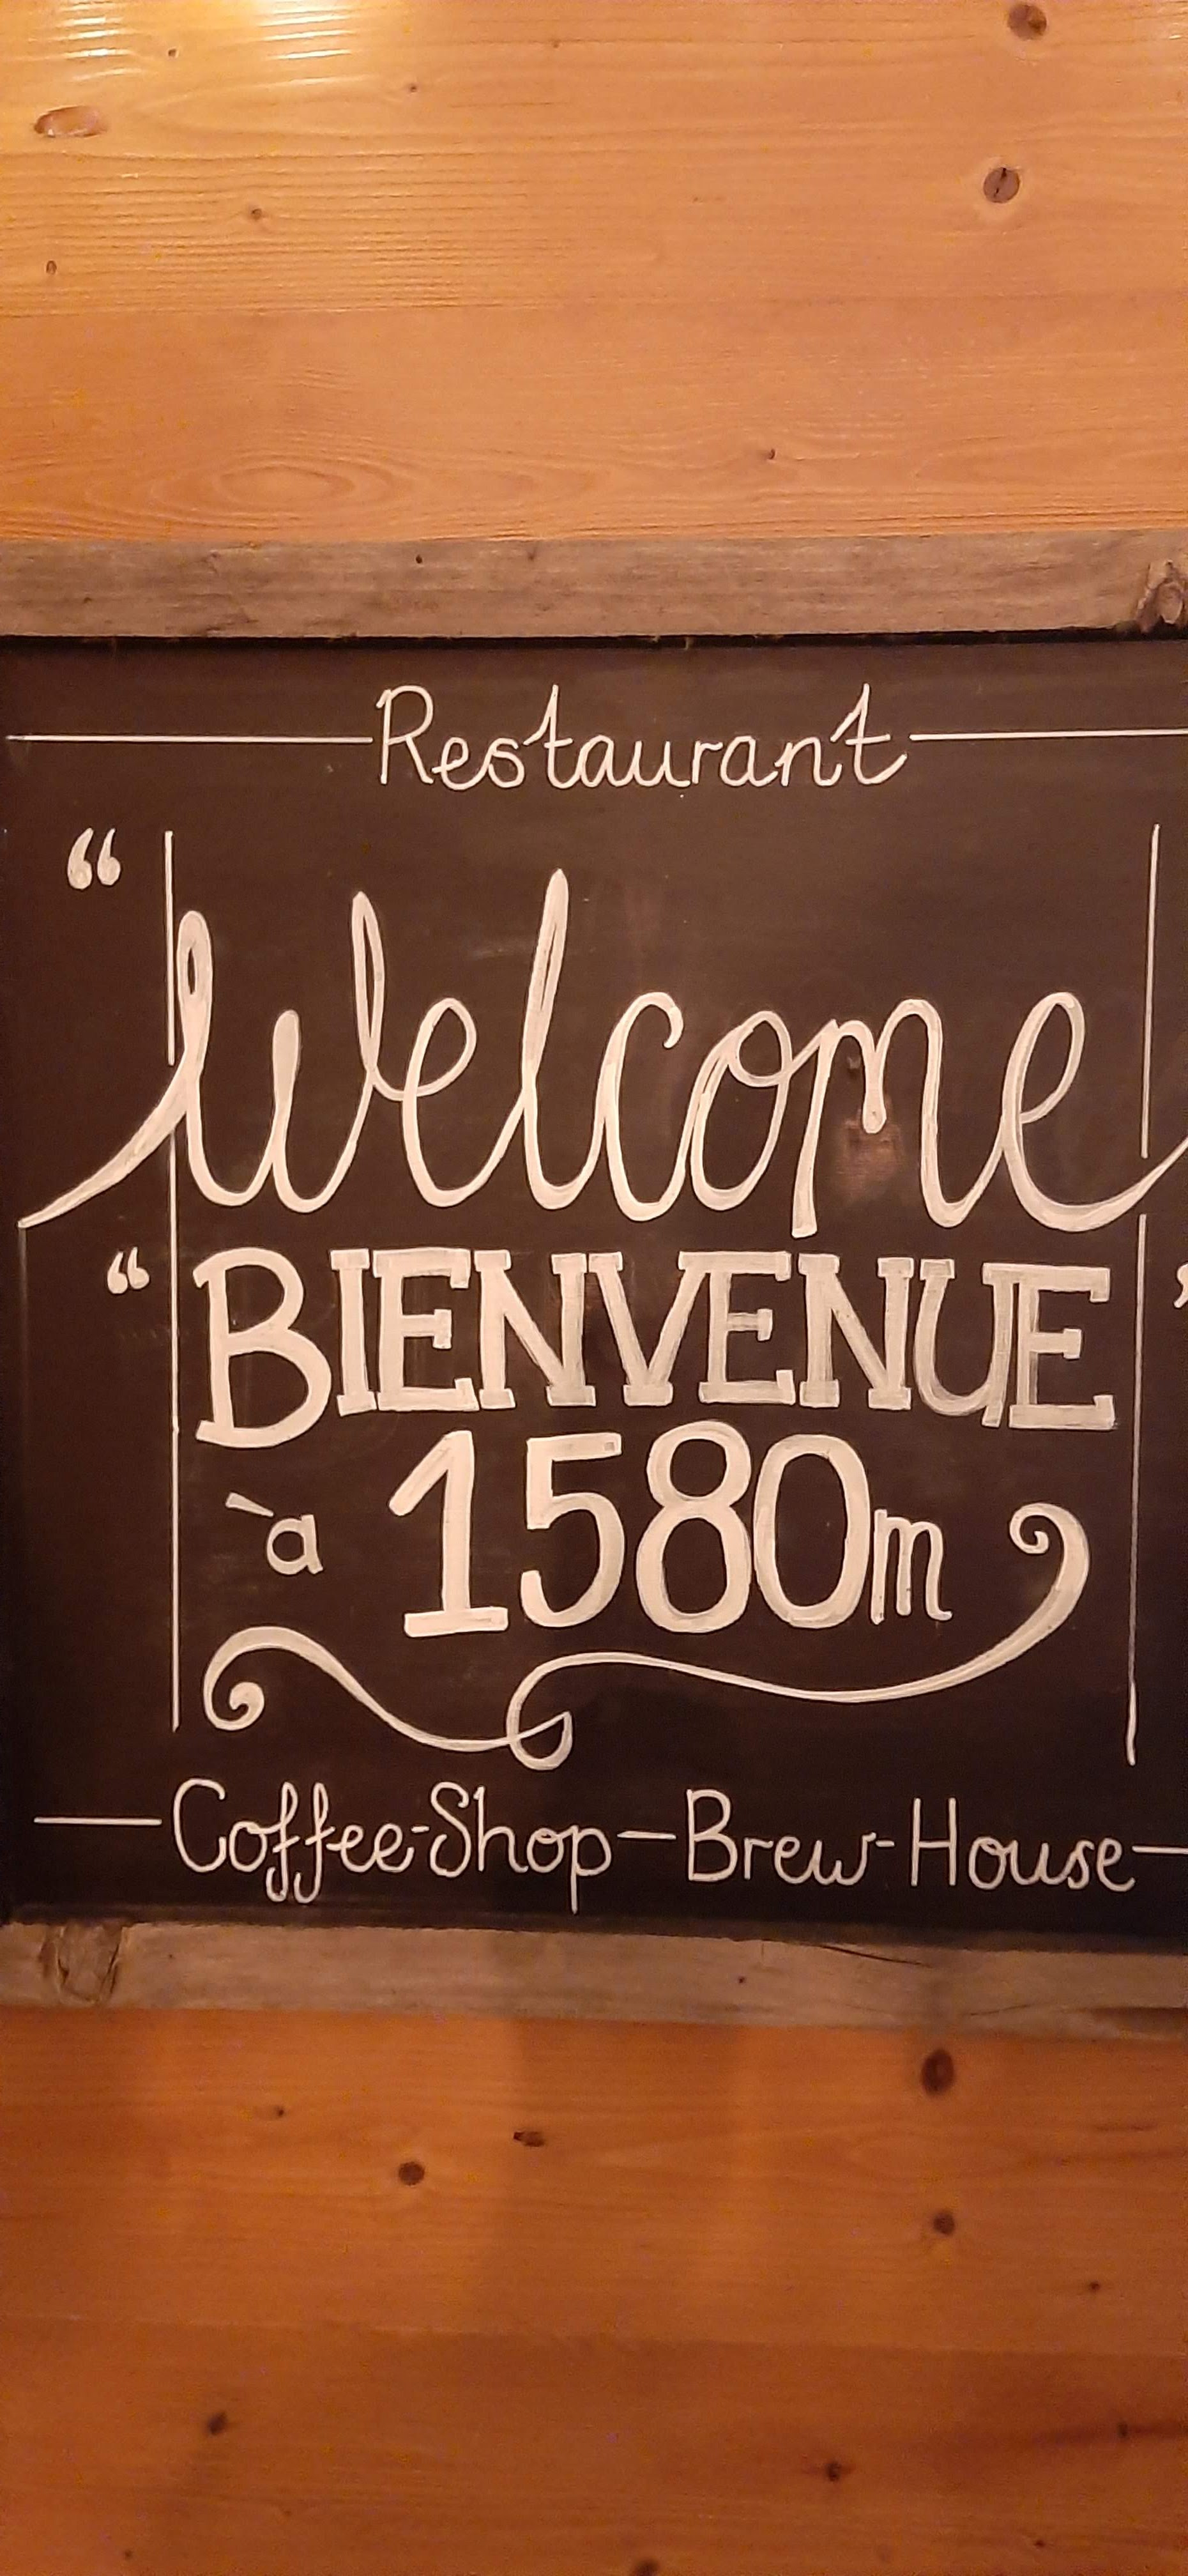 Restaurant
“ Welcome
“ BIENVENUE ”
à 1580m
Coffee-Shop - Brew-House